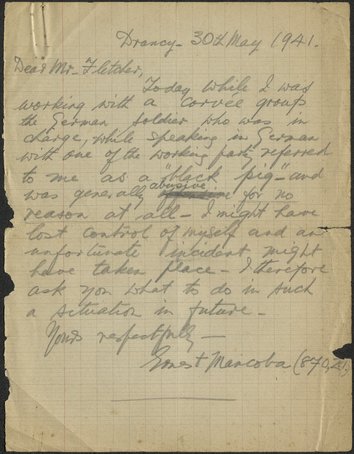 Drancy - 30th May 1941.
Dear Mr Fletcher,
Today while I was
working with a corvée group
the German soldier who was in
charge, while speaking in German
with one of the working party, referred
to me as a "black pig" - and
was generally abusive for no
reason at all - I might have
lost control of myself and an
unfortunate incident might
have taken place - I therefore
ask you what to do in such
a situation in future -
Yours respectfully -
Ernest Mancoba